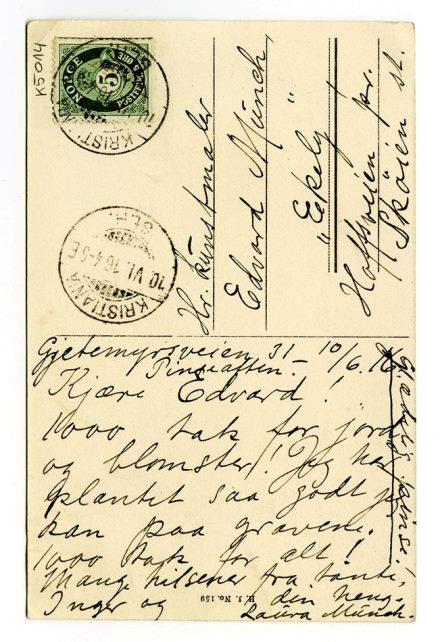 K5014
NORGE
5
POSTFRIM. 5 ØRE
KRISTIANIA
KRISTIANIA
10 VI. 16 4-5 E
Hr. kunstmaler
Edvard Münch,
"Ekely"
Hoffsveien pr.
Skøien st.
Gjetemyrsveien 31 10/6.16
Pinseaften –
Kjære Edvard!
1000 tak for jord
og blomster! Jeg har
plantet saa godt jeg
kan paa gravene.
1000 tak for alt!
Mange hilsener fra tante,
Inger og den heng.
Laura Münch.
Glædelig pinse!
H. J. No. 159